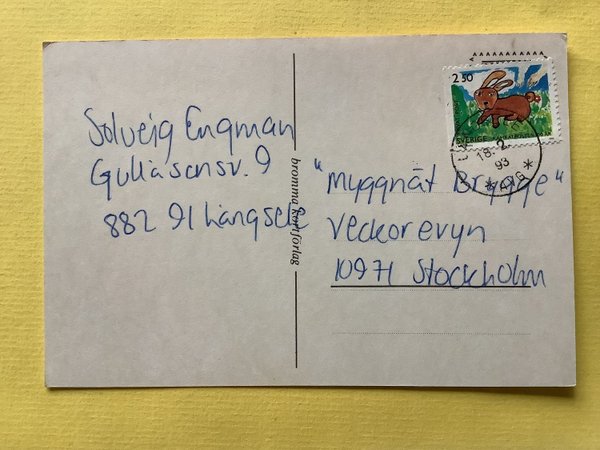 Solveig Engman
Gulläsensv. 9
882 91 Långsele
bromma kortförlag
2.50
SVERIGE
18.2.
93
"Myggnät Brygge"
Veckorevyn
10971 Stockholm